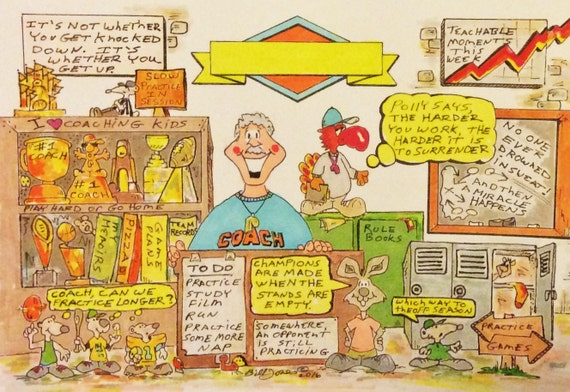 IT'S NOT WHETHER
YOU GET KNOCKED
DOWN. IT'S
WHETHER YOU
GET UP.
SLOW
PRACTICE
IN
SESSION
TEACHABLE
MOMENTS
THIS
WEEK
I ❤ COACHING KIDS
#1
COACH
#1
COACH
PLAY HARD OR GO HOME
MY
MEMOIRS
PIZZAS
GAME
PLANS
TEAM
RECORDS
COACH
POLLY SAYS,
THE HARDER
YOU WORK, THE
HARDER IT IS
TO SURRENDER
NO ONE
EVER
DROWNED
IN SWEAT!
AND THEN
A MIRACLE
HAPPENS
RULE
BOOKS
TO DO
PRACTICE
STUDY
FILM
RUN
PRACTICE
SOME MORE
NAP
CHAMPIONS
ARE MADE
WHEN THE
STANDS ARE
EMPTY.
SOMEWHERE
AN OPPONENT
IS STILL
PRACTICING
COACH, CAN WE
PRACTICE LONGER?
WHICH WAY TO
THE OFF SEASON
PRACTICE
GAMES
2016